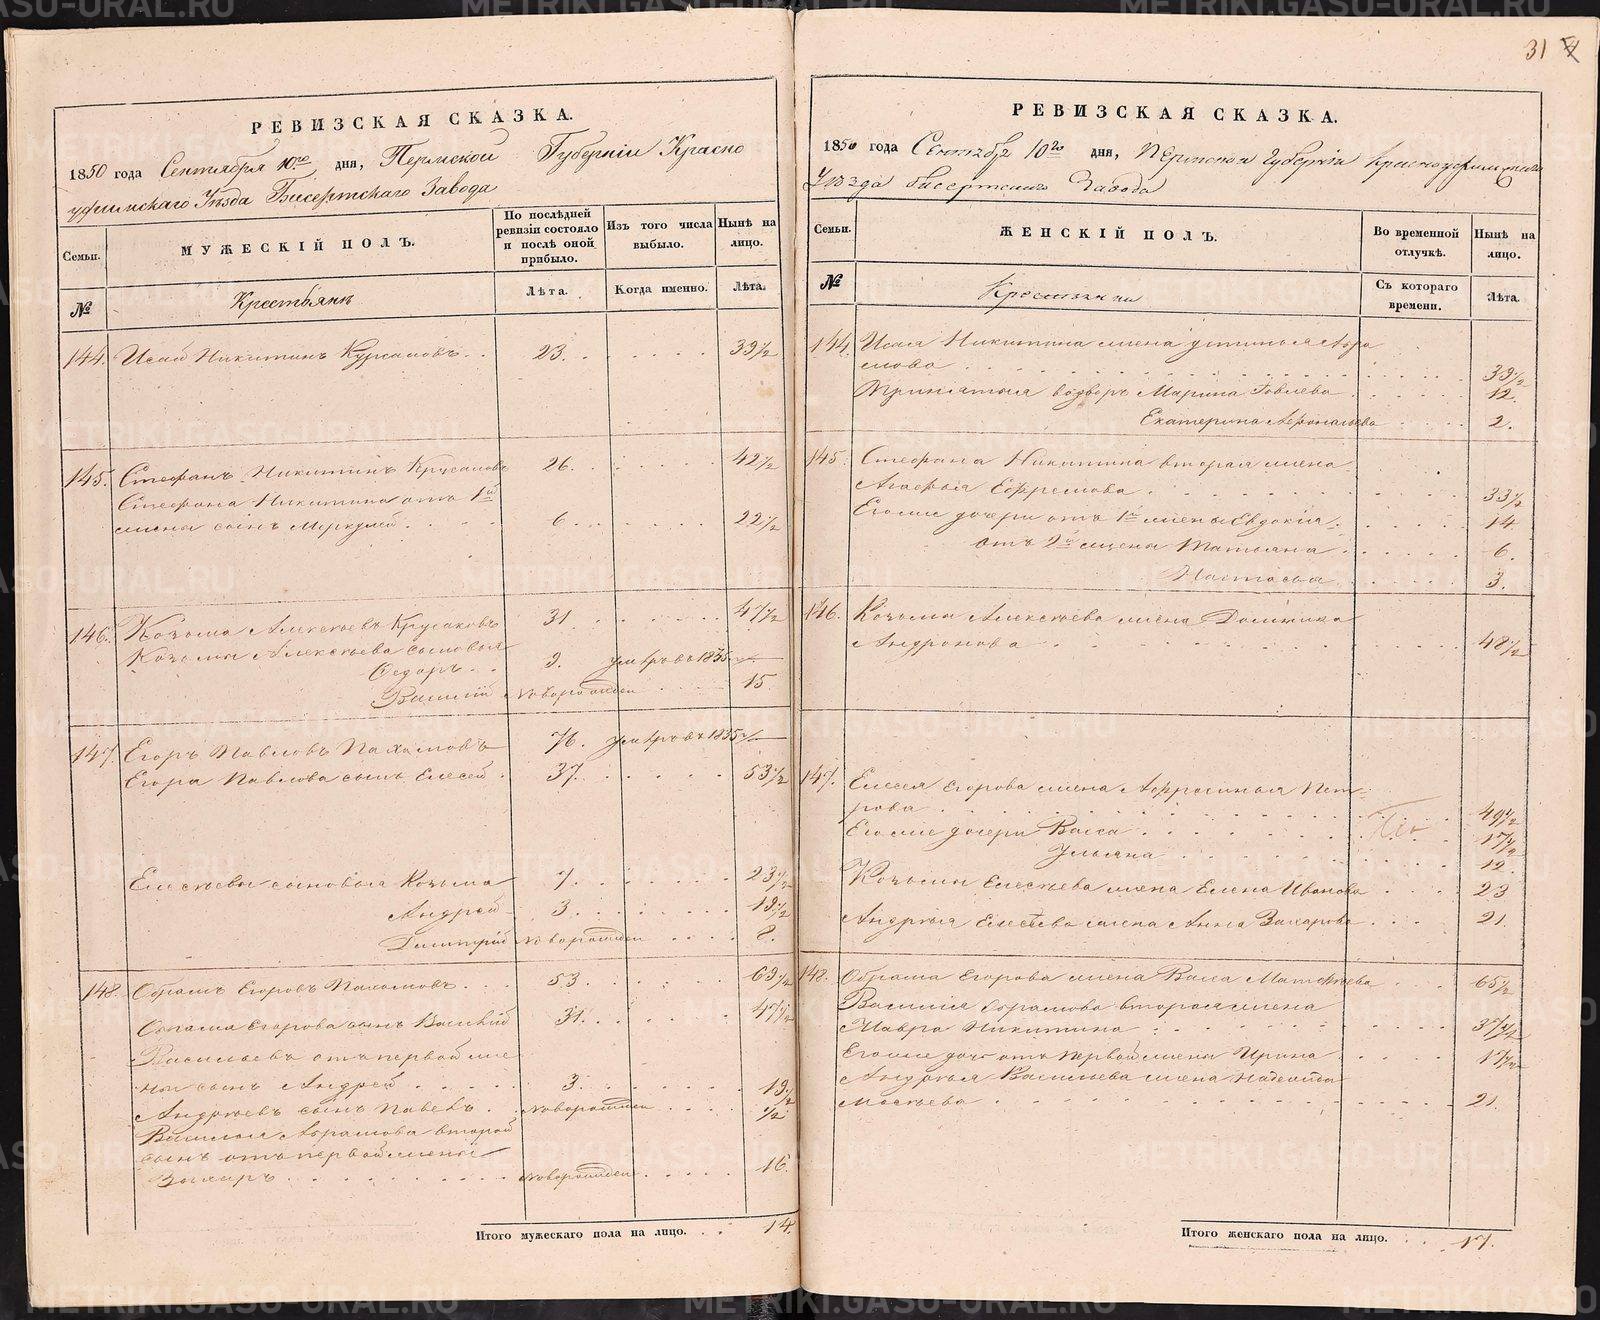 31
РЕВИЗСКАЯ СКАЗКА.
1850 года Сентября 10го дня, Пермской Губерніи Красно
уфимскаго Уѣзда Бисертскаго Завода
Семьи.
МУЖЕСКІЙ ПОЛЪ.
По послѣдней ревизіи состояло и послѣ оной прибыло.
Изъ того числа выбыло.
Нынѣ на лицо.
№
Крестьянъ
Лѣта.
Когда именно.
Лѣта.
144. Исай Никитинъ 23. 39½
145. Стефанъ Никитинъ Крусановъ 26. 42½
Стефана Никитина отъ 1й
жены сынъ Меркулей 6. 22½
146. Козьма Алексѣевъ Крусановъ 31 47½
Козьмы Алексѣева сыновья
Федоръ 9. умеръ въ 1835
Василій новорожден 15
147 Егоръ Павловъ Пахомовъ 76. умеръ въ 1835
Егора Павлова сынъ Елесей 37. 53½
Елесѣевы сыновья Козьма 7. 23½
Андрей 3. 19½
Димитрій новорожден 8.
148. Обрамъ Егоровъ Пахомовъ 53 69½
Обрама Егорова сынъ Василій 31. 47½
Васильевъ отъ первой же
ны сынъ Андрей 3. 19½
Андреевъ сынъ Павелъ новорожден ½
Василья Абрамова второй
сынъ отъ первой жены
Захаръ новорожден 16
Итого мужескаго пола на лицо. 14.
РЕВИЗСКАЯ СКАЗКА.
1850 года Сентября 10го дня, Пермской Губерніи Красноуфимскаго
Уѣзда Бисертскаго Завода
Семьи.
ЖЕНСКІЙ ПОЛЪ.
Во временной отлучкѣ.
Нынѣ на лицо.
№
Съ котораго времени.
Лѣта.
144. Исая Никитина жена Устинья
39½
Марина 12.
Екатерина 2.
145. Стефана Никитина вторая жена
Агафья Ефремова 33½
Его же дочери отъ 1й жены Евдокія 14
отъ 2й жены Татьяна 6.
Настасья 3.
146. Козьмы Алексѣева жена Домника
Андронова 48½
147. Елесея Егорова жена Афросинья Пет
рова 49½
Его же дочери Васса 17½
Ульяна 12.
Козьмы Елесѣева жена Елена Иванова 23
Андрея Елесѣева жена Анна Захарова 21.
148. Обрама Егорова жена Васса Матвѣева 65½
Василья Абрамова вторая жена
Мавра Никитина 37½
Его же дочь отъ первой жены Ирина 17½
Андрея Васильева жена Надежда
Мосѣева 21.
Итого женскаго пола на лицо. 17.
METRIKI.GASO-URAL.RU